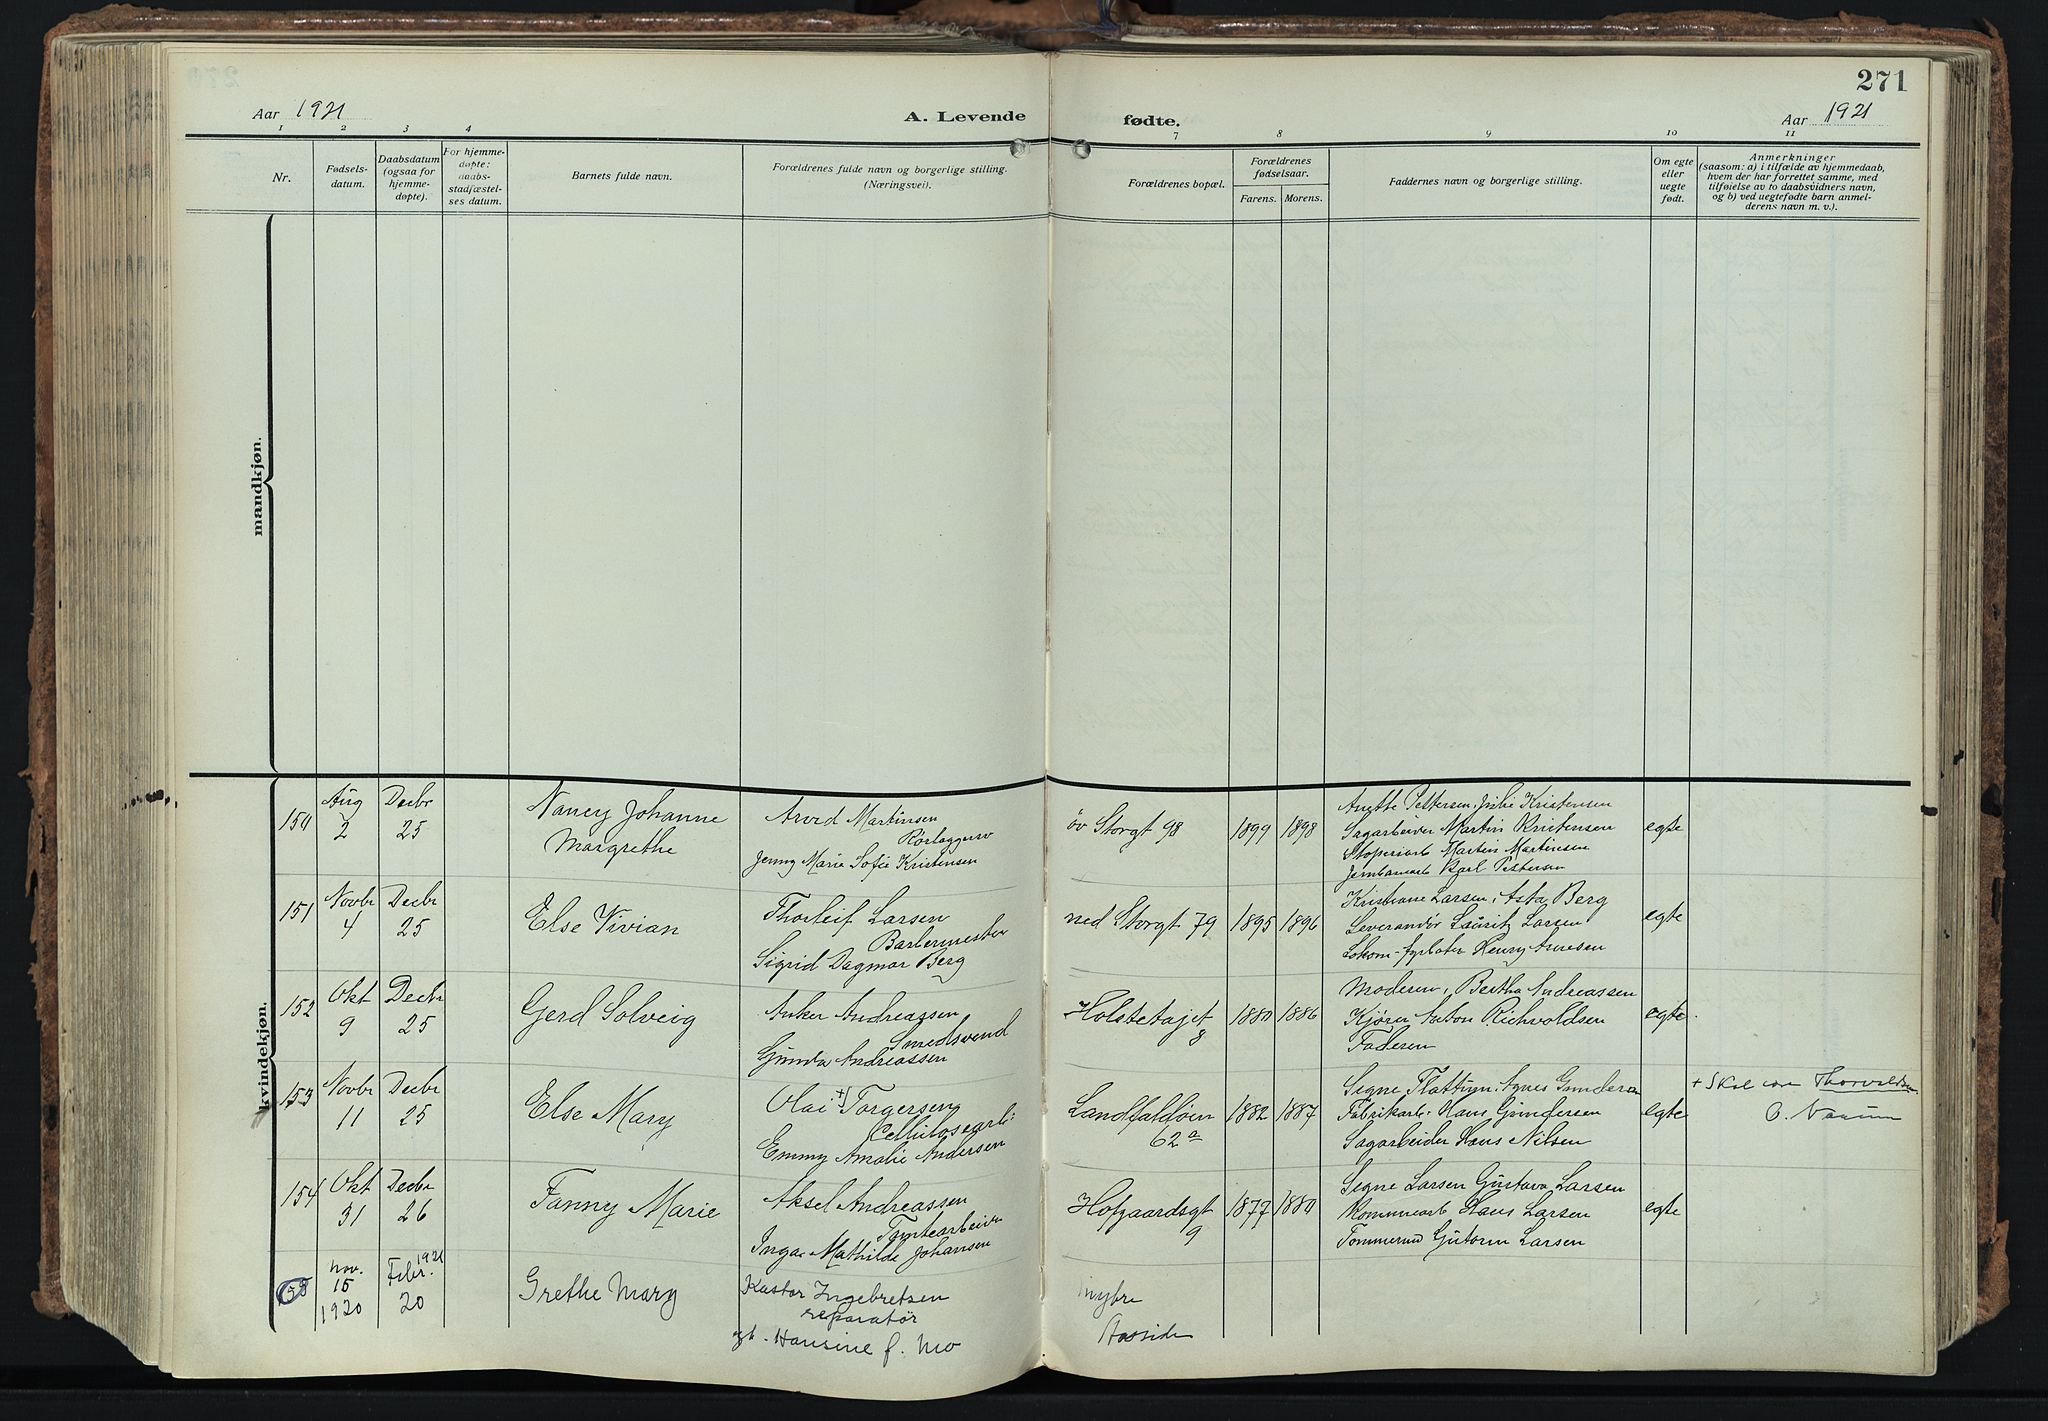 271
Aar 1921
A. Levende
fødte.
Aar 1921
1 2 3 4 7 8 9 10 11
Nr.
Fødsels-
datum.
Daabsdatum
(ogsaa for
hjemme-
døpte).
For hjemme-
døpte:
daabs-
stadfæstel-
ses datum.
Barnets fulde navn.
Forældrenes fulde navn og borgerlige stilling.
(Næringsvei).
Forældrenes bopæl.
Forældrenes
fødselsaar.
Farens. Morens.
Faddernes navn og borgerlige stilling.
Om egte
eller
uegte
født.
Anmerkninger
(saasom: a) i tilfælde av hjemmedaab,
hvem der har forrettet samme, med
tilføielse av to daabsvidners navn,
og b) ved uegtefødte barn anmel-
derens navn m. v.).
mandkjøn.
kvindekjøn.
150
Aug
2
Decbr
25
Nancy Johanne
Margrethe
Arvid Martinsen
Rørlæggersv
Jenny Marie Sofie Kristensen
øv Storgt 98
1899 1898
Anette Pettersen, Julie Kristensen
Sagarbeider Martin Kristensen
Martin Martinsen
Karl Pettersen
egte
151
Novbr
4
Decbr
25
Else Vivian
Thorleif Larsen
Barbermester
Sigrid Dagmar Berg
ned Storgt 79
1895 1896
Kristiane Larsen, Asta Berg
Leverandør Lauritz Larsen
Lokom-fyrbøter Henry
egte
152
Okt
9
Decbr
25
Gerd Solveig
Anker Andreassen
Smedsvend
Gunda Andreassen
Holstetajet
8
1880 1886
Moderen, Bertha Andreassen
Kjører Anton Richvoldsen
Faderen
egte
153
Novbr
11
Decbr
25
Else Mary
Olai +) Torgersen
Cellulosearb:
Emmy Amalie Andersen
Landfaldøien
62a
1882 1887
Signe Flattum, Agnes Gundersen
Fabrikarb. Hans Gundersen
Sagarbeider Hans Nilsen
egte
+ Skal være Thorvaldsen
154
Okt
31
Decbr
26
Fanny Marie
Aksel Andreassen
Tomtearbeider
Inga Mathilde Johansen
Hofgaardsgt
9
1877 1880
Signe Larsen Gustava Larsen
Kommunearb Hans Larsen
Tømmermd Gutorm Larsen
egte
155
Nov.
15
1920
1921
Febr.
20
Grethe Mary
Kastor Ingebretsen
reparatør
og h. Hansine f. Mo
Myhre
Aasside